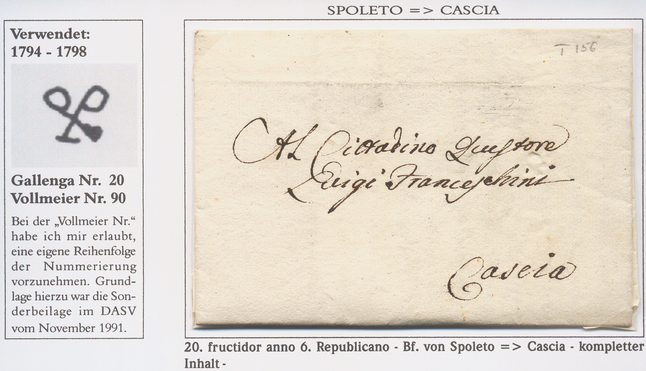 SPOLETO => CASCIA
Verwendet:
1794 - 1798
Gallenga Nr. 20
Vollmeier Nr. 90
Bei der „Vollmeier Nr.“
habe ich mir erlaubt,
eine eigene Reihenfolge
der Nummerierung
vorzunehmen. Grund-
lage hierzu war die Son-
derbeilage im DASV
vom November 1991.
T 156
Al Cittadino Questore
Luigi Franceschini
Cascia
20. fructidor anno 6. Republicano - Bf. von Spoleto => Cascia - kompletter
Inhalt -